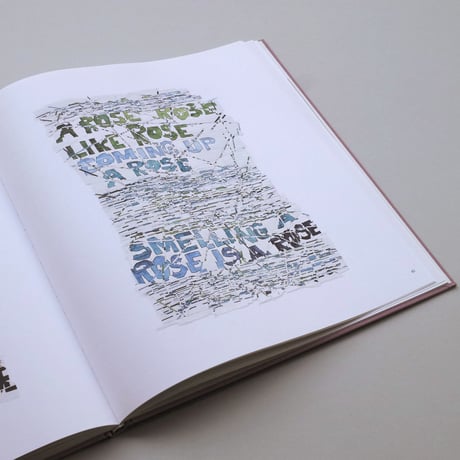 A ROSE ROSEY
LIKE ROSE
COMING UP
A ROSE
SMELLING A
ROSE IS A ROSE